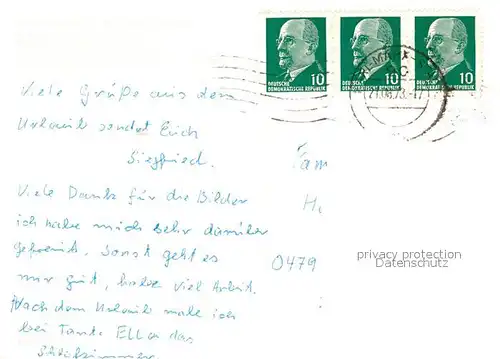 DEUTSCHE
DEMOKRATISCHE REPUBLIK 10
DEUTSCHE
DEMOKRATISCHE REPUBLIK 10
DEUTSCHE
DEMOKRATISCHE REPUBLIK 10
Viele Grüße aus dem
Urlaub sendet Euch
Siegfried.
Fam
Viele Dank für die Bilder
ich habe mich sehr darüber
gefreut. Sonst geht es
mir gut, habe viel Arbeit.
Nach dem Urlaub male ich
bei Tante Ella das
Schlafzimmer
0479
privacy protection
Datenschutz